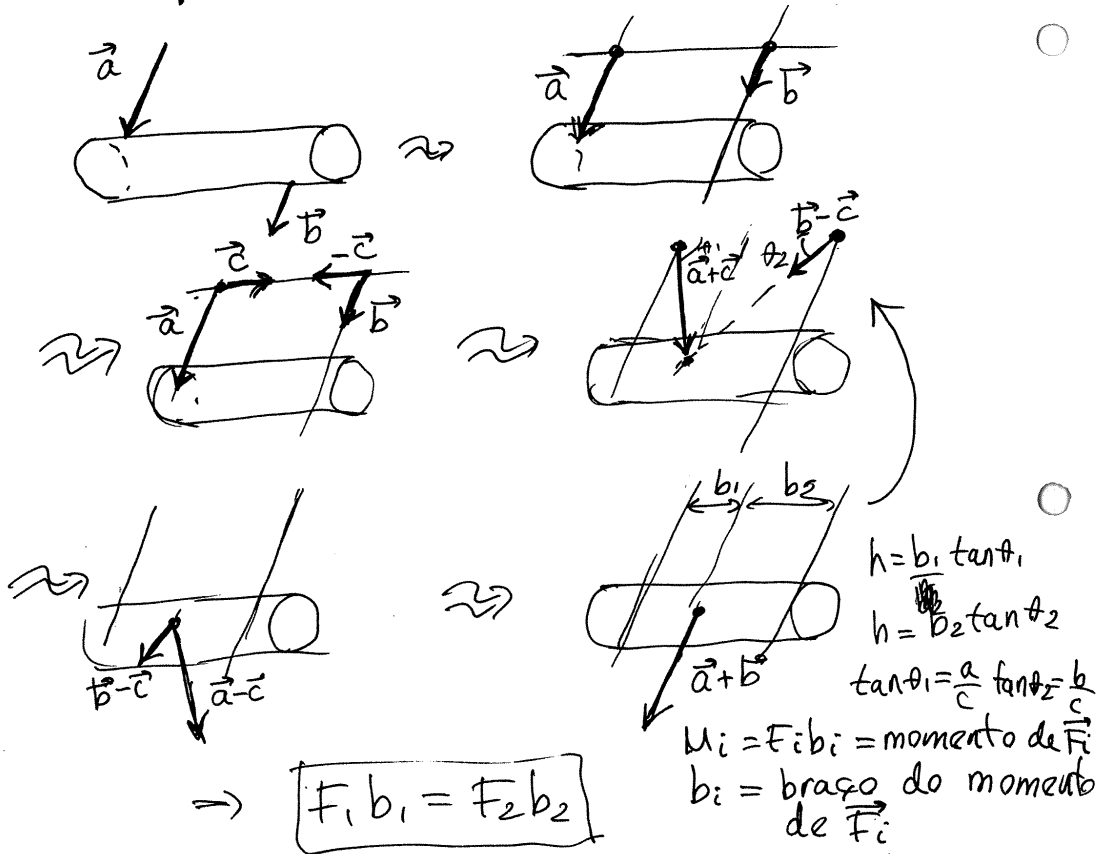 a⃗
b⃗
a⃗
b⃗
c⃗ -c⃗
a⃗
b⃗
b⃗-c⃗
θ₁
a⃗+c⃗
θ₂
b⃗-c⃗
a⃗-c⃗
b₁ b₂
a⃗+b⃗
h = b₁ tanθ₁
h = b₂ tanθ₂
tanθ₁ = a/c tanθ₂ = b/c
Mᵢ = Fᵢbᵢ = momento de F⃗ᵢ
bᵢ = braço do momento
de F⃗ᵢ
⇒ F₁b₁ = F₂b₂